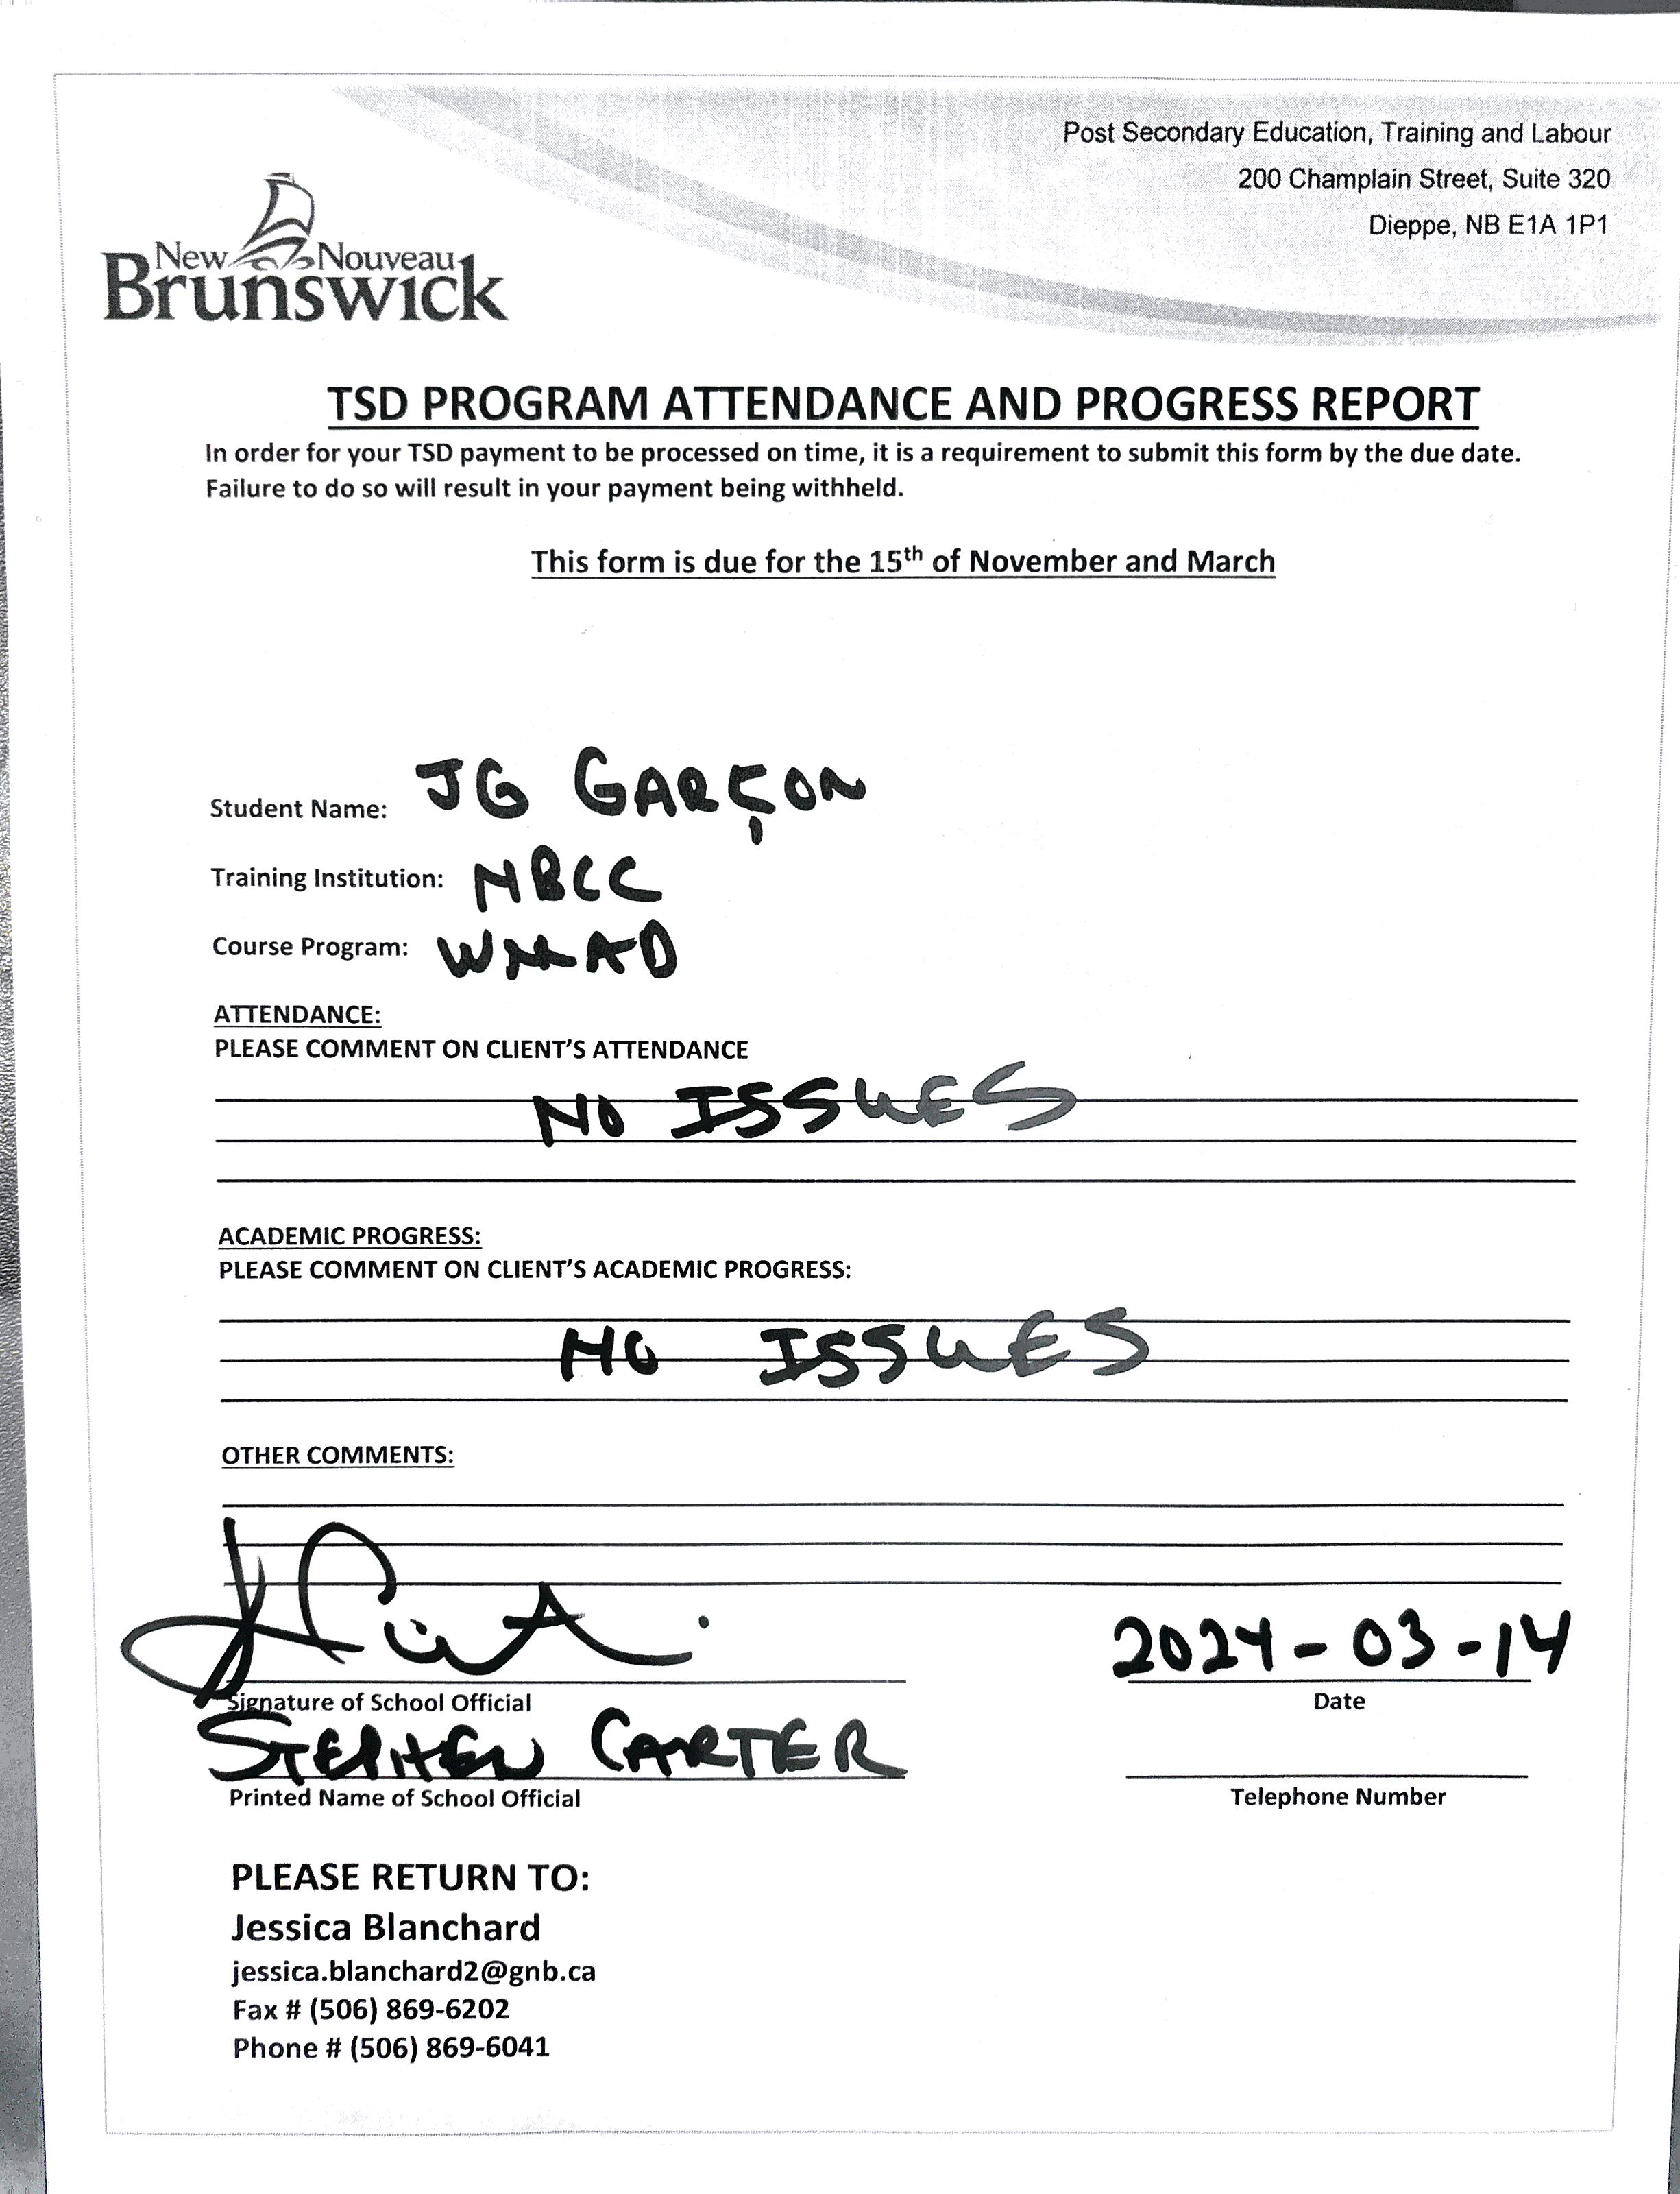 Post Secondary Education, Training and Labour
200 Champlain Street, Suite 320
Dieppe, NB E1A 1P1
New Nouveau
Brunswick
TSD PROGRAM ATTENDANCE AND PROGRESS REPORT
In order for your TSD payment to be processed on time, it is a requirement to submit this form by the due date.
Failure to do so will result in your payment being withheld.
This form is due for the 15th of November and March
Student Name: JG GARÇON
Training Institution: NBCC
Course Program: WMAD
ATTENDANCE:
PLEASE COMMENT ON CLIENT'S ATTENDANCE
NO ISSUES
ACADEMIC PROGRESS:
PLEASE COMMENT ON CLIENT'S ACADEMIC PROGRESS:
NO ISSUES
OTHER COMMENTS:
2024-03-14
Signature of School Official Date
STEPHEN CARTER
Printed Name of School Official Telephone Number
PLEASE RETURN TO:
Jessica Blanchard
jessica.blanchard2@gnb.ca
Fax # (506) 869-6202
Phone # (506) 869-6041